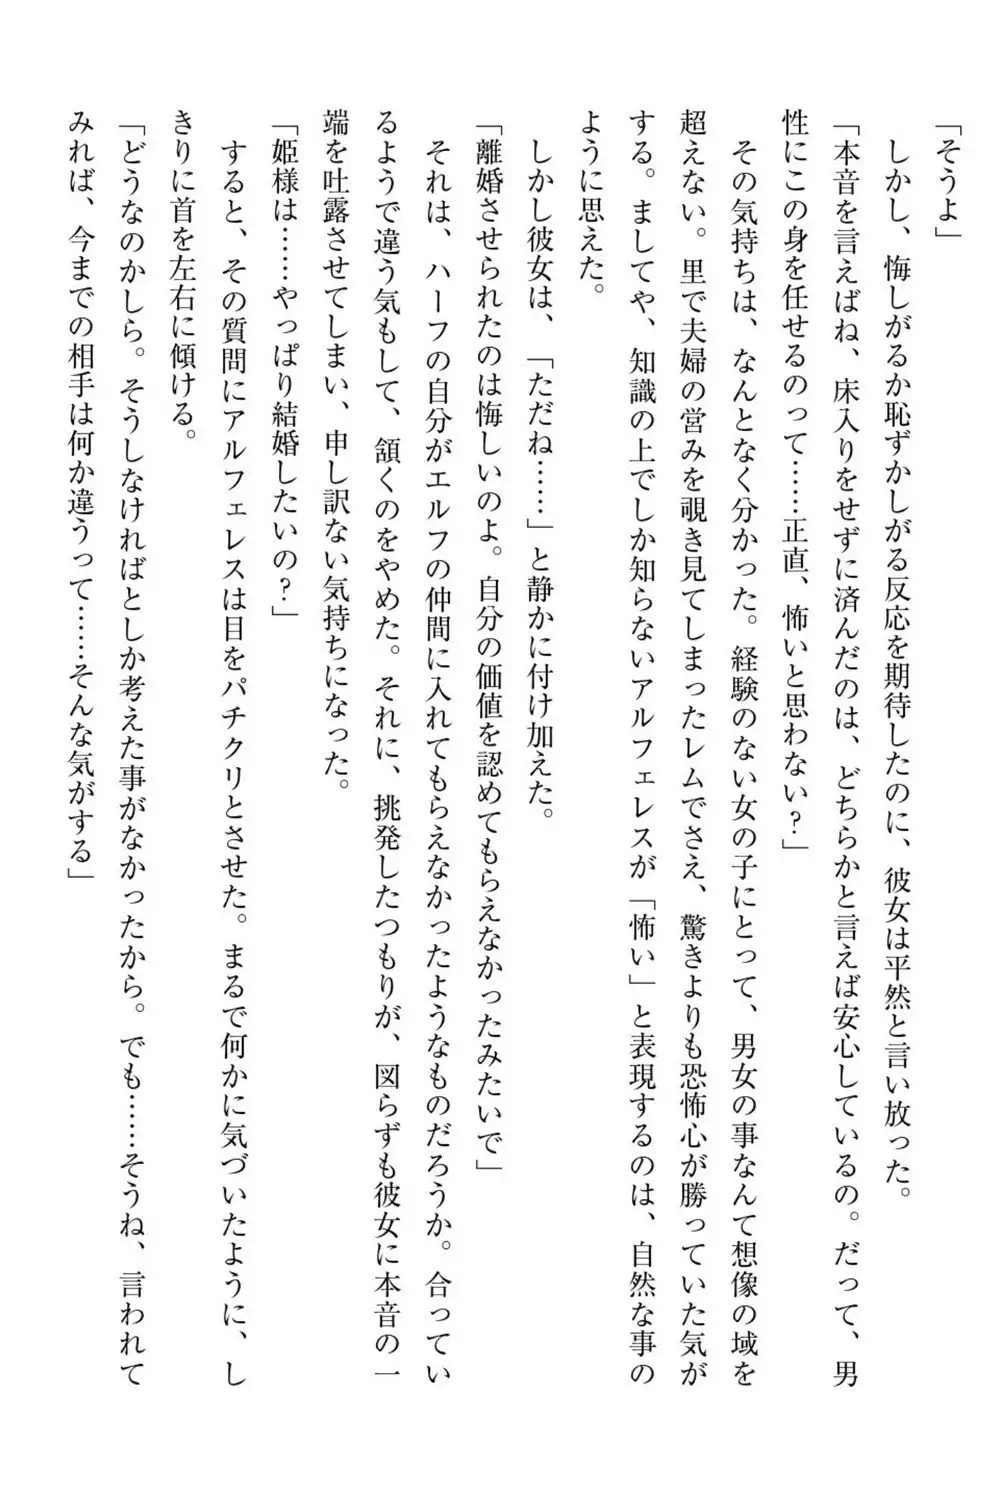 「そうよ」
　しかし、悔しがるか恥ずかしがる反応を期待したのに、彼女は平然と言い放った。
「本音を言えばね、床入りをせずに済んだのは、どちらかと言えば安心しているの。だって、男
性にこの身を任せるのって……正直、怖いと思わない？」
　その気持ちは、なんとなく分かった。経験のない女の子にとって、男女の事なんて想像の域を
超えない。里で夫婦の営みを覗き見てしまったレムでさえ、驚きよりも恐怖心が勝っていた気が
する。ましてや、知識の上でしか知らないアルフェレスが「怖い」と表現するのは、自然な事の
ように思えた。
　しかし彼女は、「ただね……」と静かに付け加えた。
「離婚させられたのは悔しいのよ。自分の価値を認めてもらえなかったみたいで」
　それは、ハーフの自分がエルフの仲間に入れてもらえなかったようなものだろうか。合ってい
るようで違う気もして、頷くのをやめた。それに、挑発したつもりが、図らずも彼女に本音の一
端を吐露させてしまい、申し訳ない気持ちになった。
「姫様は……やっぱり結婚したいの？」
　すると、その質問にアルフェレスは目をパチクリとさせた。まるで何かに気づいたように、し
きりに首を左右に傾ける。
「どうなのかしら。そうしなければとしか考えた事がなかったから。でも……そうね、言われて
みれば、今までの相手は何か違うって……そんな気がする」